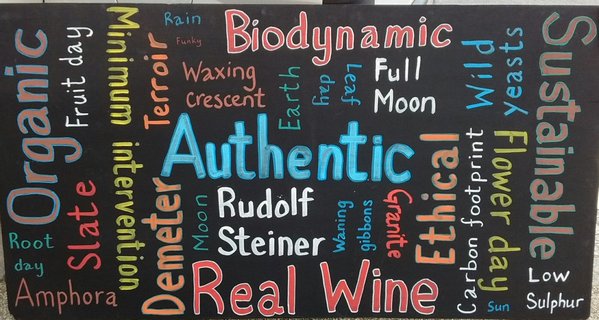 Organic
Fruit day
Minimum intervention
Terroir
Rain
Funky
Biodynamic
Waxing
Crescent
Earth
Leaf
day
Full
Moon
Wild
yeasts
Sustainable
Authentic
Root
day
Slate
Amphora
Demeter
Moon
Rudolf
Steiner
Waning
gibbons
Granite
Ethical
Carbon footprint
Flower day
Real Wine
Sun
Low
Sulphur